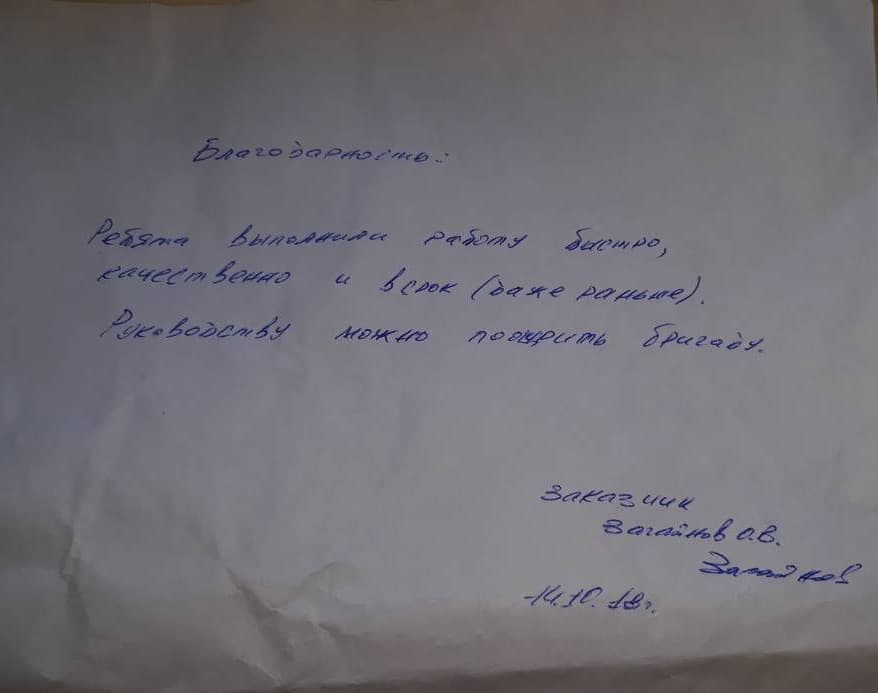 Благодарность:
Ребята выполнили работу быстро,
качественно и в срок (даже раньше).
Руководству можно поощрить бригаду.
Заказчик
Загайнов О.В.
Загайнов
14.10.18г.